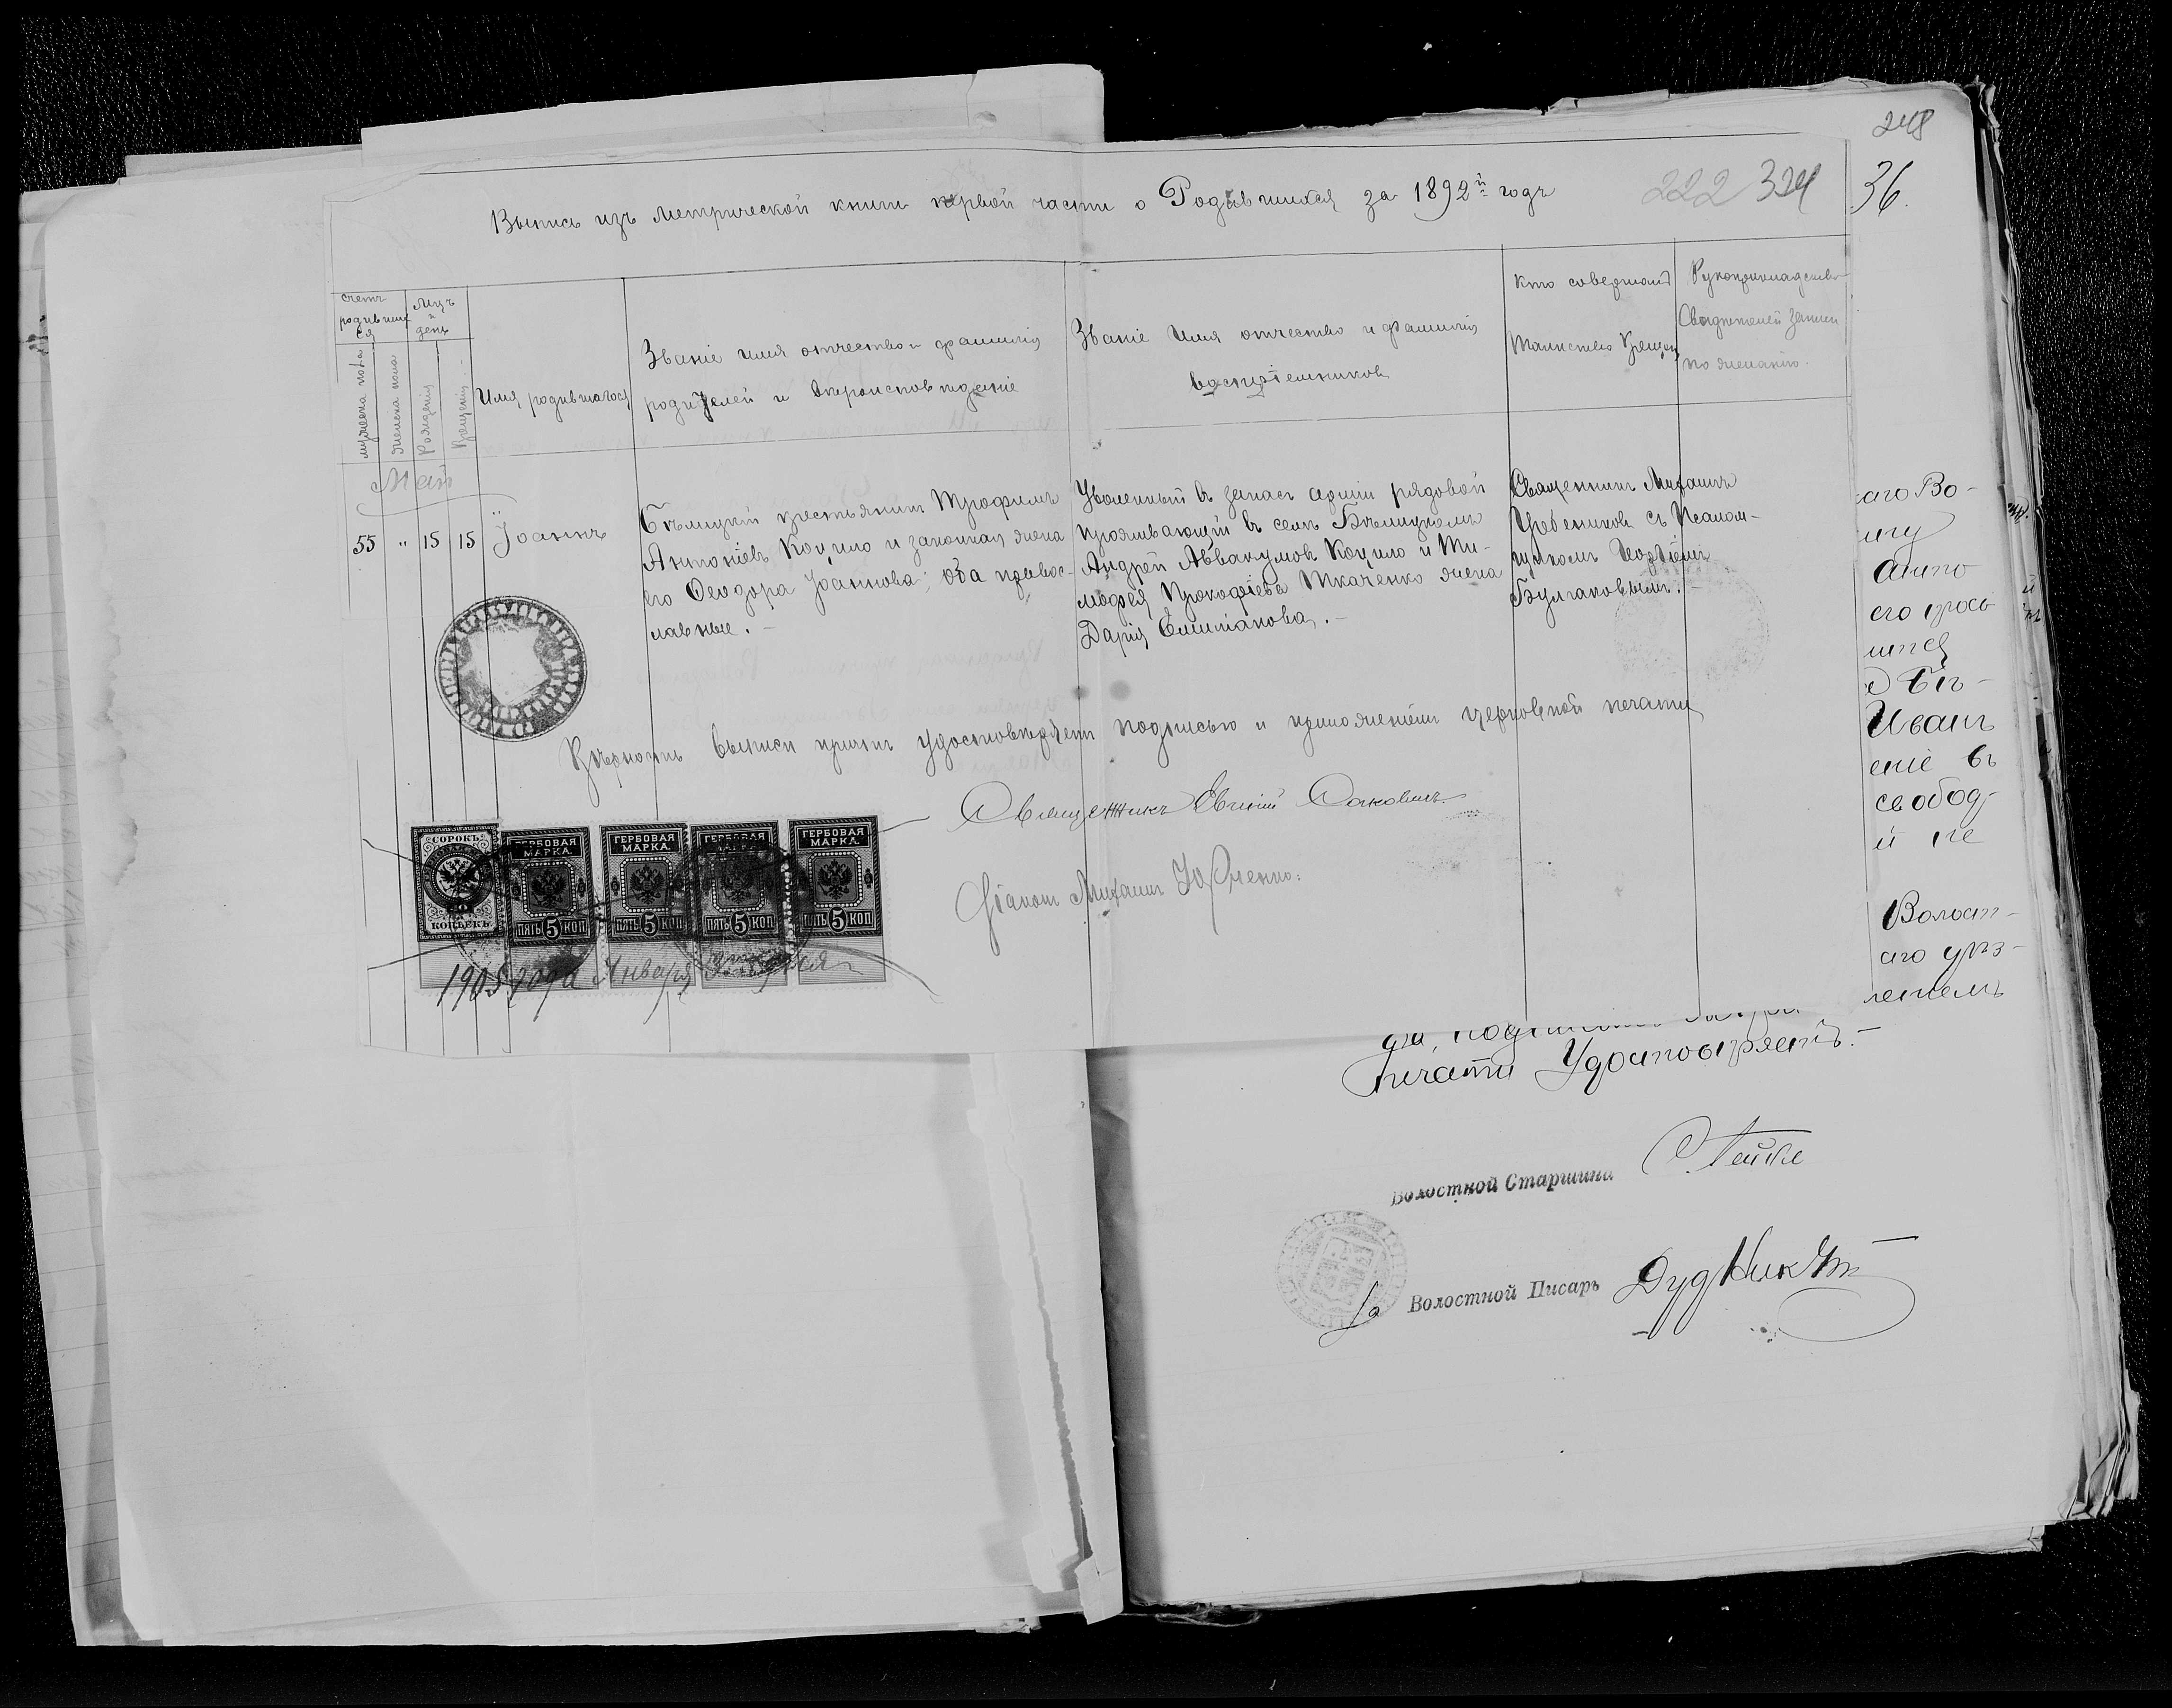 248
36.
222 324
Выпись изъ метрической книги первой части о Родившихся за 1892й годъ
счетъ родившихся
мужеска пола
женска пола
Мцъ и день
Рожденія
Крещенія
Имя родившагося
Званіе имя отчество и фамилія
родителей и вѣроисповѣданіе
Званіе Имя отчество и фамилія
воспріемниковъ
Кто совершалъ
таинство Крещенія
Рукоприкладство
Свидѣтелей записи
по желанію
Май
55 " 15 15
Іоаннъ
Бѣлицкій крестьянинъ Трофимъ
Антоніевъ Коцило и законная жена
его Ѳеодора Іоаннова; оба правос-
лавные. -
Уволенный въ запасъ арміи рядовой
проживающій въ селѣ Бѣлицкомъ
Андрей Аввакумовъ Коцило и Ти-
мофея Прокофіева Ткаченко жена
Дарія Емиліанова. -
Священникъ Михаилъ
Гребениковъ съ Псалом-
щикомъ
Булгаковымъ. -
Вѣрность выписи причтъ удостовѣряетъ подписью и приложеніемъ церковной печати
Священникъ Евгеній
Діаконъ Михаилъ Юрченко:
СОРОКЪ
КОПѢЕКЪ
ГЕРБОВАЯ МАРКА.
ПЯТЬ 5 КОП
ГЕРБОВАЯ МАРКА.
ПЯТЬ 5 КОП
ГЕРБОВАЯ МАРКА.
ПЯТЬ 5 КОП
ГЕРБОВАЯ МАРКА.
ПЯТЬ 5 КОП
1905 года Января
аго Во-
его прось
Бѣ-
Иванъ
еніе въ
свобод-
й не
Волост-
аго уѣз-
печати Удостовѣряетъ. -
Волостной Старшина
Волостной Писарь Дудник